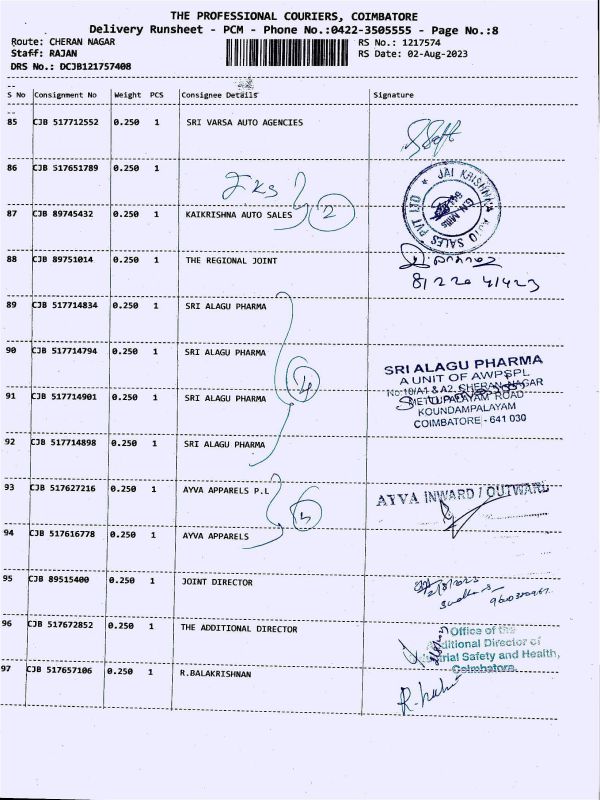 THE PROFESSIONAL COURIERS, COIMBATORE
Delivery Runsheet - PCM - Phone No.:0422-3505555 - Page No.:8
Route: CHERAN NAGAR RS No.: 1217574
Staff: RAJAN RS Date: 02-Aug-2023
DRS No.: DCJB121757408
S No Consignment No Weight PCS Consignee Details Signature
85 CJB 517712552 0.250 1 SRI VARSA AUTO AGENCIES
86 CJB 517651789 0.250 1
JAI KRISHNA AUTO SALES PVT LTD
G.N. Mills
87 CJB 89745432 0.250 1 KAIKRISHNA AUTO SALES 2
88 CJB 89751014 0.250 1 THE REGIONAL JOINT
89 CJB 517714834 0.250 1 SRI ALAGU PHARMA
90 CJB 517714794 0.250 1 SRI ALAGU PHARMA
4
SRI ALAGU PHARMA
A UNIT OF AWPSPL
No:10/A1 & A2, CHERAN NAGAR
METTUPALAYAM ROAD
KOUNDAMPALAYAM
COIMBATORE - 641 030
91 CJB 517714901 0.250 1 SRI ALAGU PHARMA
92 CJB 517714898 0.250 1 SRI ALAGU PHARMA
93 CJB 517627216 0.250 1 AYVA APPARELS P.L AYVA INWARD / OUTWARD
94 CJB 517616778 0.250 1 AYVA APPARELS
95 CJB 89515400 0.250 1 JOINT DIRECTOR
96 CJB 517672852 0.250 1 THE ADDITIONAL DIRECTOR
Office of the
Additional Director of
Industrial Safety and Health,
Coimbatore.
97 CJB 517657106 0.250 1 R.BALAKRISHNAN